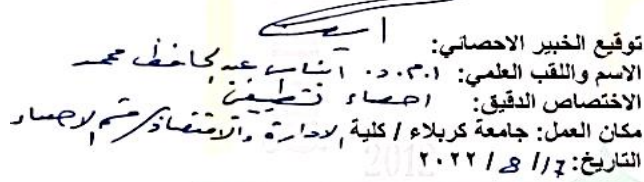 توقيع الخبير الاحصائي:
الاسم واللقب العلمي: ا.م.د. ايناس عبد الحافظ محمد
الاختصاص الدقيق: احصاء تطبيقي
مكان العمل: جامعة كربلاء / كلية الادارة والاقتصاد/ قسم الاحصاء
التاريخ: ١٧/ 8 / ٢٠٢٢
2012